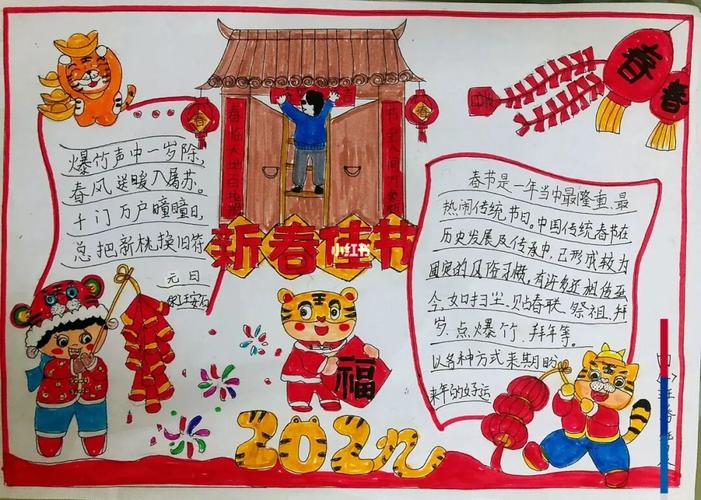 春
春
春
春
新春佳节
小红书
爆竹声中一岁除,
春风送暖入屠苏。
千门万户曈曈日,
总把新桃换旧符
元日
宋王安石
福
2022
春节是一年当中最隆重、最
热闹传统节日。中国传统春节在
历史发展及传承中,已形成较为
固定的风俗习惯,有许多还相传至
今,如扫尘、贴春联、祭祖、拜
岁、点爆竹、拜年等。
以各种方式来期盼
来年的好运